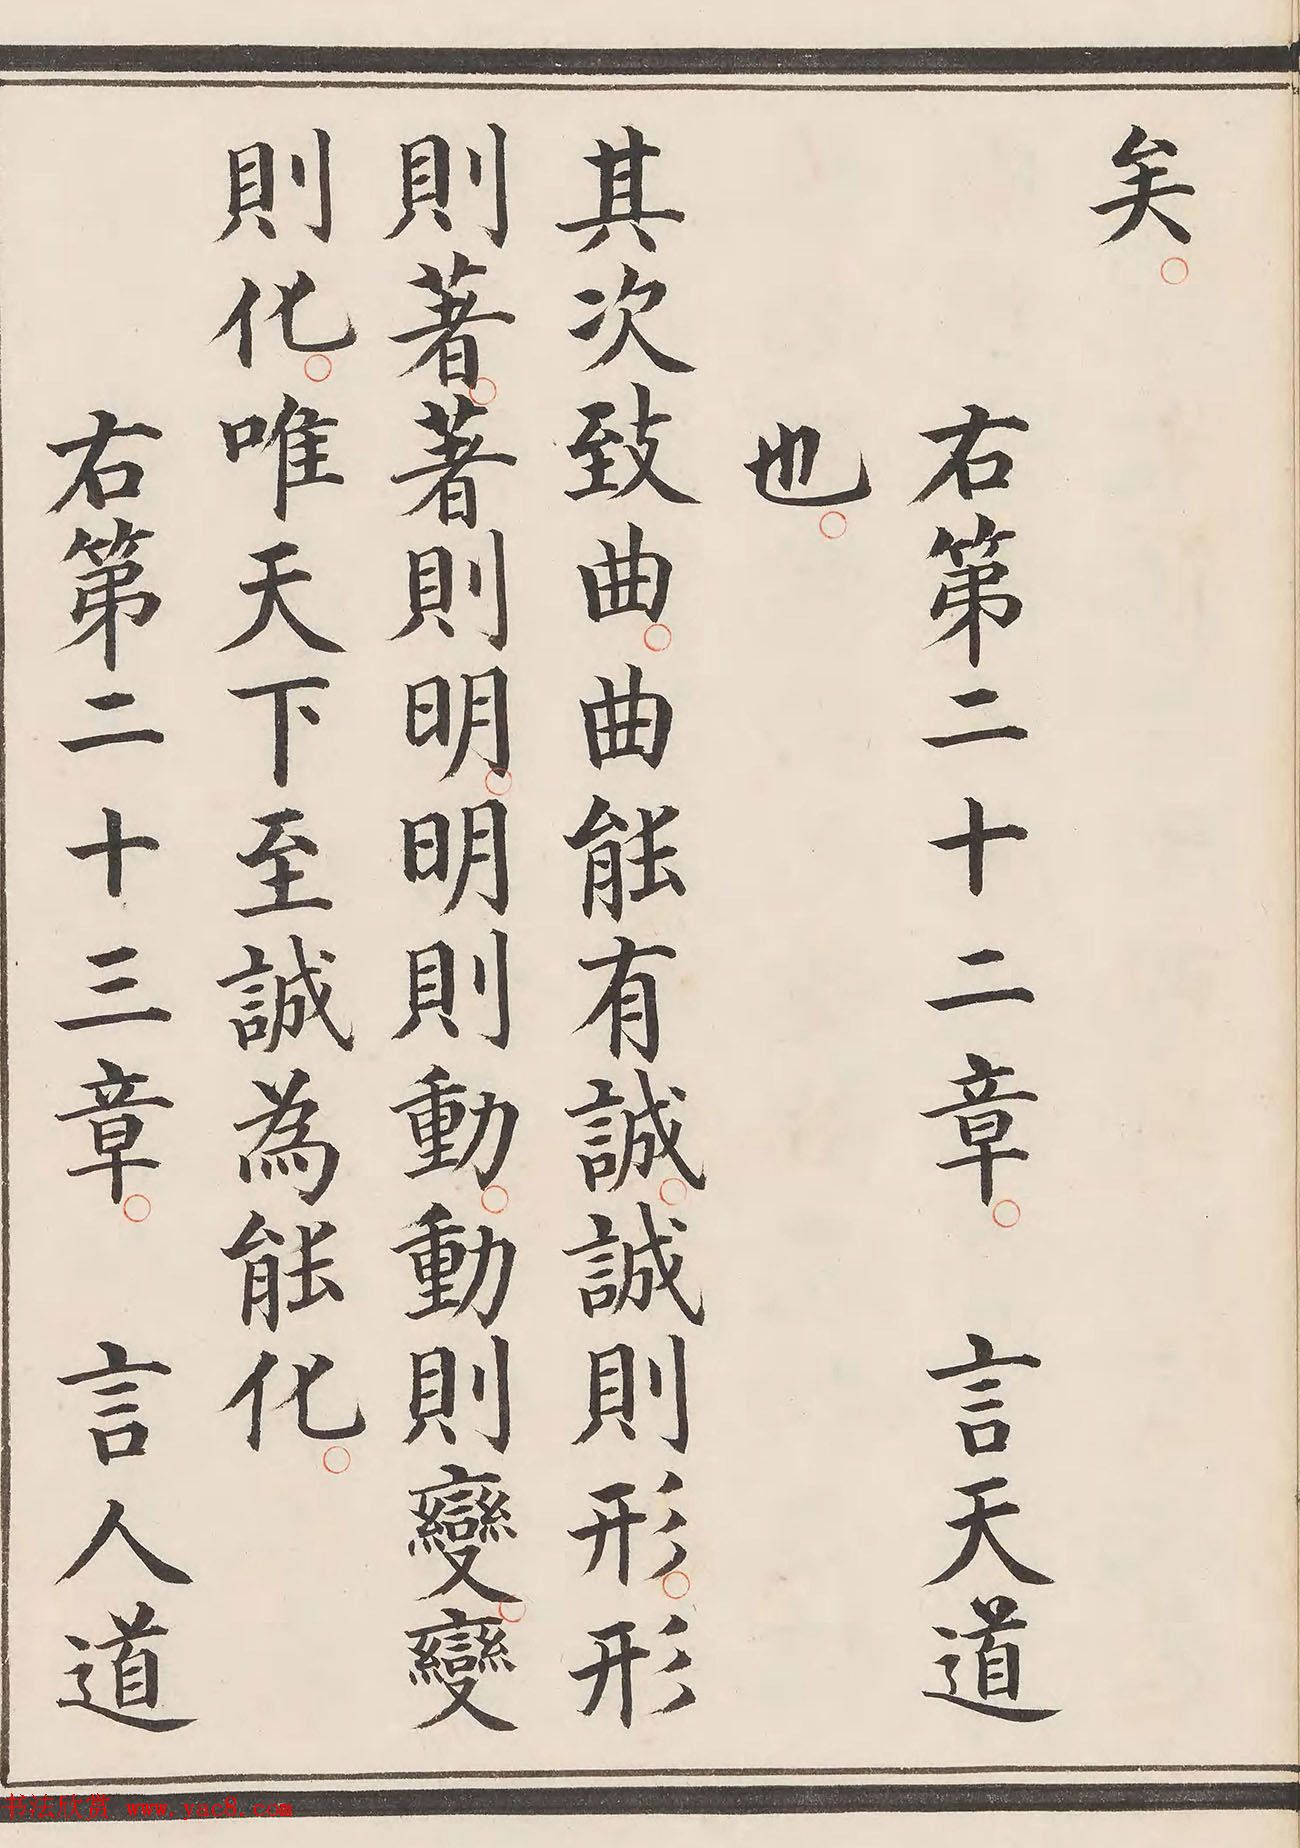 矣。
右第二十二章。 言天道
也。
其次致曲。曲能有誠。誠則形。形
則著。著則明。明則動。動則變。變
則化。唯天下至誠為能化。
右第二十三章。 言人道
书法欣赏 www.yac8.com